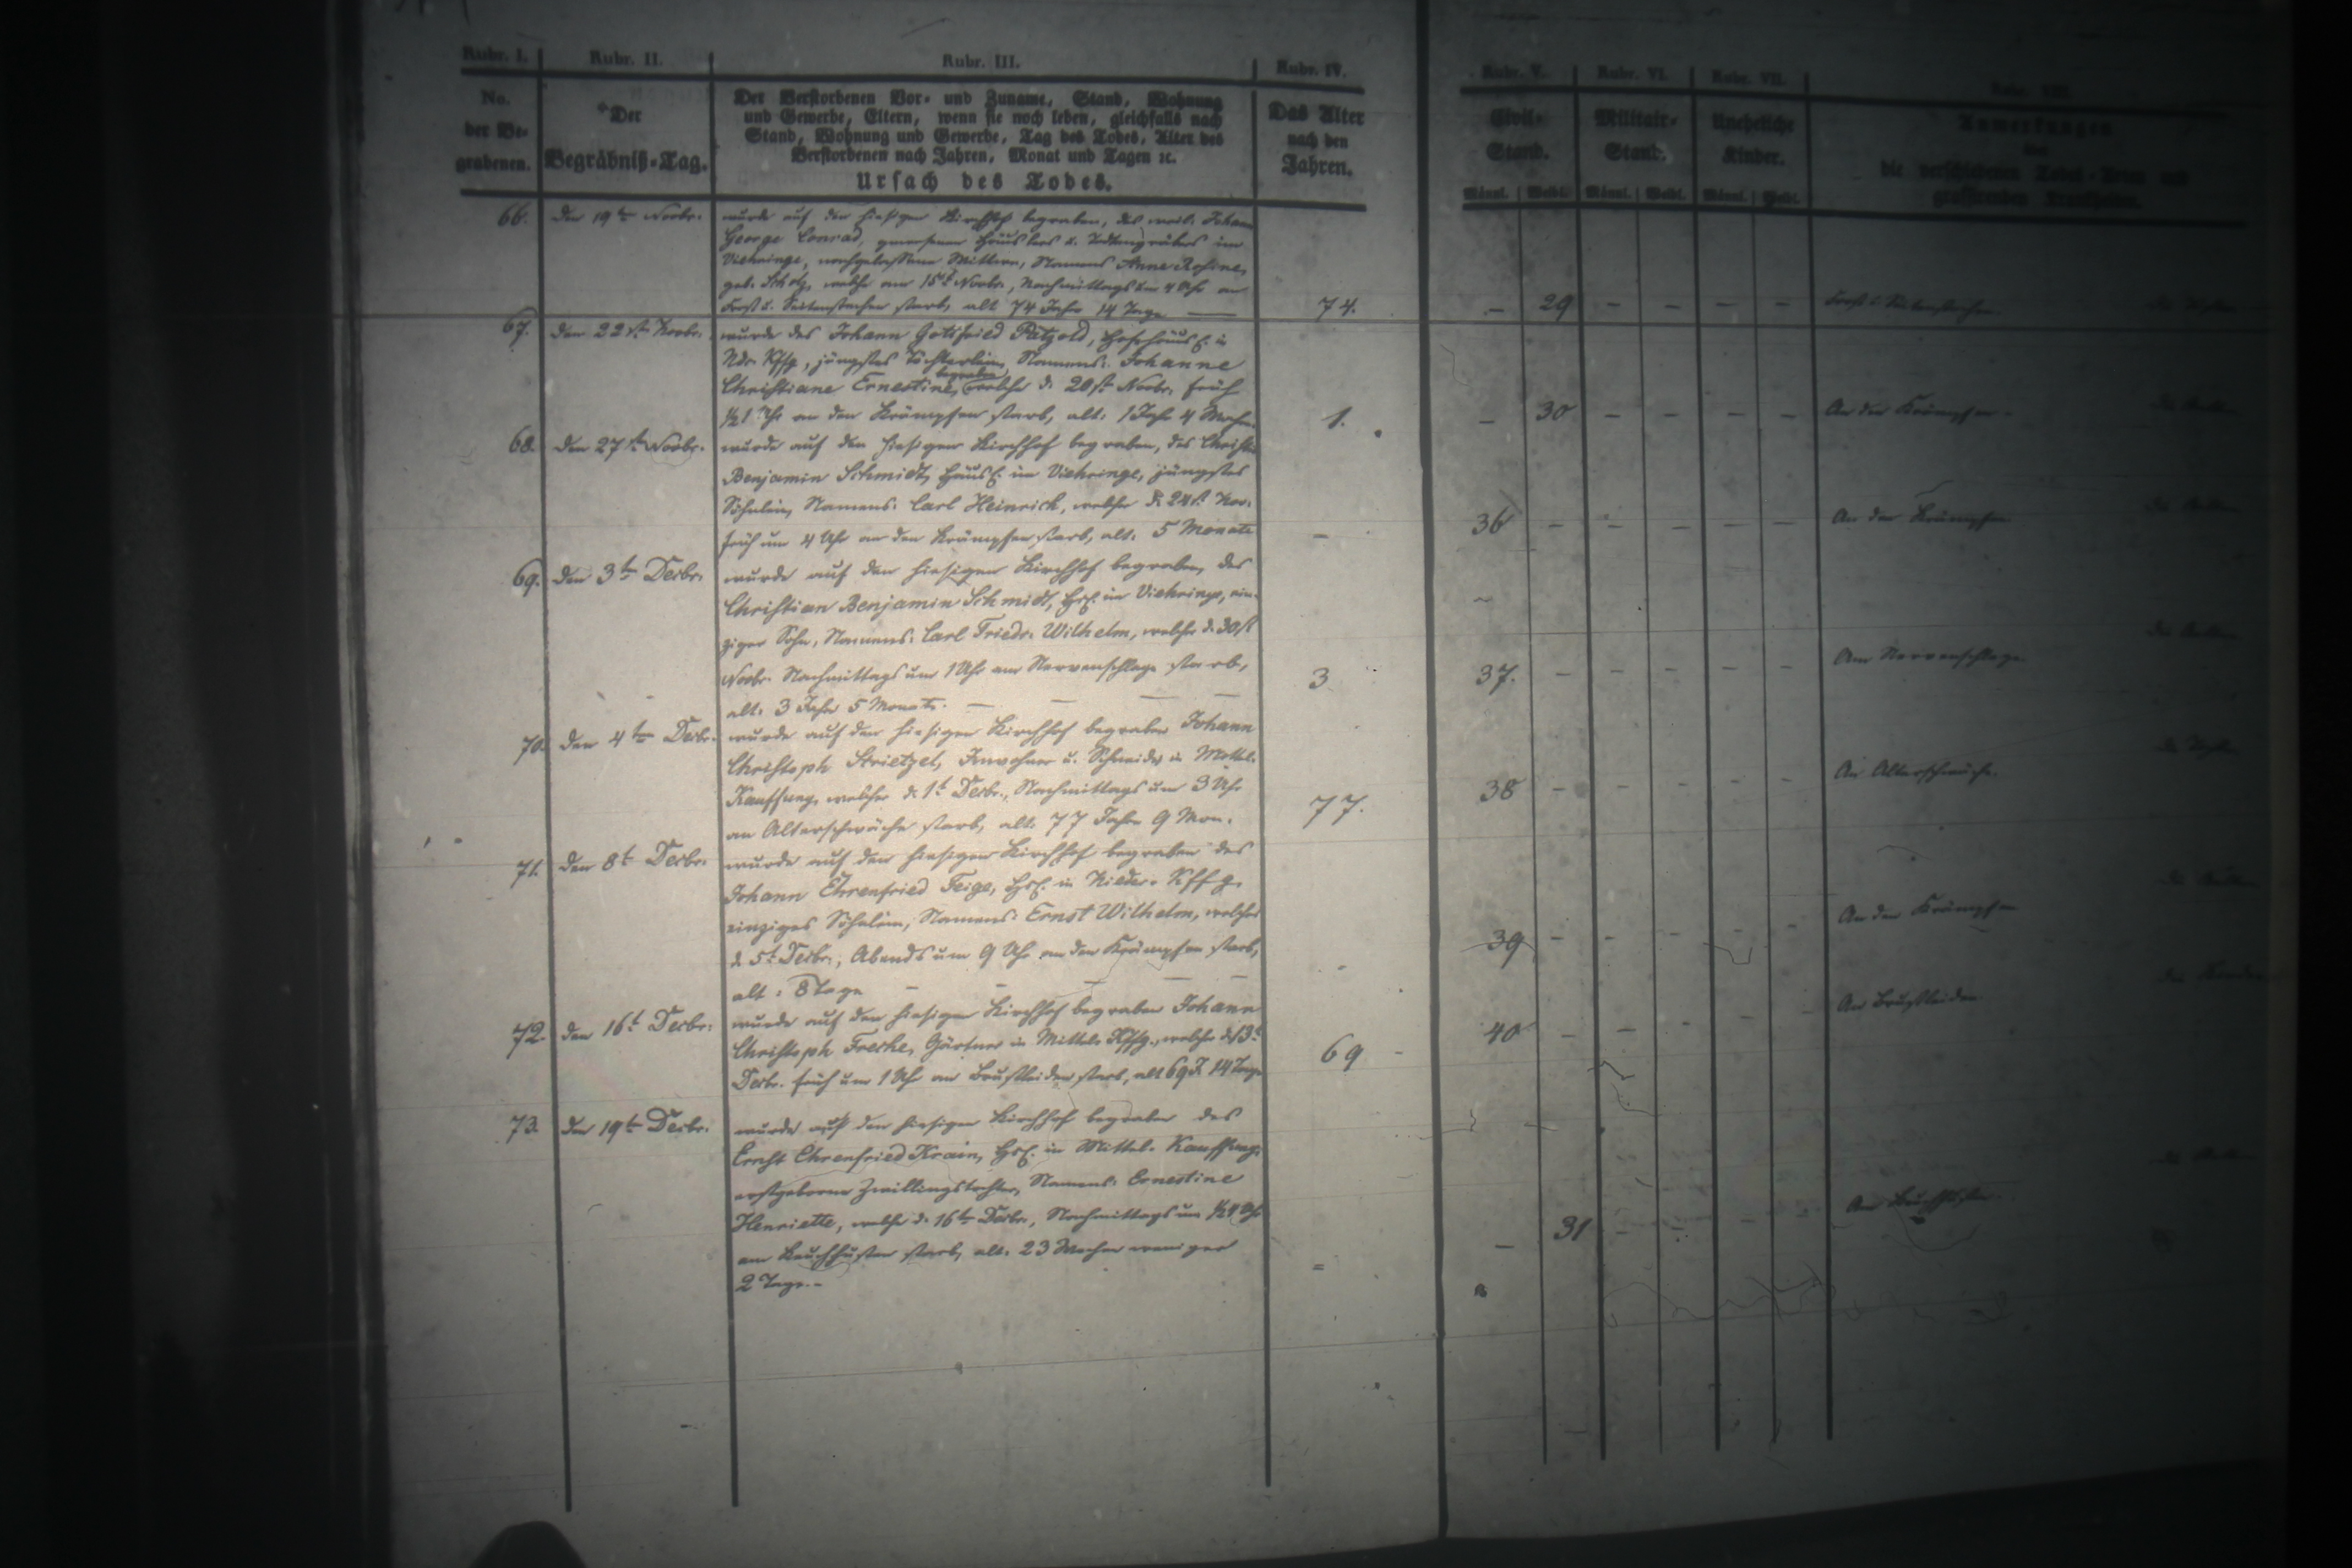 Rubr. I.
Rubr. II.
Rubr. III.
Rubr. IV.
Rubr. V.
Rubr. VI.
Rubr. VII.
No.
der Be-
grabenen.
Der
Begräbniß-Tag.
Der Verstorbenen Vor- und Zuname, Stand, Wohnung
und Gewerbe, Eltern, wenn sie noch leben, gleichfalls nach
Stand, Wohnung und Gewerbe, Tag des Todes, Alter des
Verstorbenen nach Jahren, Monat und Tagen ꝛc.
Ursach des Todes.
Das Alter
nach den
Jahren.
Civil-
Stand.
Männl. Weibl.
Militair-
Stand.
Männl. Weibl.
Uneheliche
Kinder.
Männl. Weibl.
Anmerkungen
die verschiedenen Todes-Arten und
grassirenden Krankheiten.
66. den 19t Novbr. wurde auf den hiesigen Kirchhof begraben, des weil. Johann
George Conrad, gewesenen Häuslers u. Todtengräbers im
Viehringe, nachgelassene Wittwe, Namens Anne Rosine,
geb. Scholz, welche am 15t Novbr., Nachmittags um 4 Uhr an
Frost u. Seitenstechen starb, alt 74 Jahr 14 Tage — 74. - 29 - - - - Frost u. Seitenstechen
67. den 22st Novbr. wurde des Johann Gottfried Pätzold, in
Ndr. Kffg, jüngstes Töchterlein, Namens: Johanne
Christiane Ernestine, begraben, welche d. 20st Novbr. früh
½1 Uhr an den Krämpfen starb, alt: 1 Jahr 4 Wochen. 1. - 30 - - - - An den Krämpfen -
68. den 27t Novbr. wurde auf den hiesigen Kirchhof begraben, des Christian
Benjamin Schmidt, Häusl. im Viehringe, jüngstes
Söhnlein, Namens: Carl Heinrich, welcher d. 24st Nov.
früh um 4 Uhr an den Krämpfen starb, alt: 5 Monate - 36 - - - - - An den Krämpfen
69. den 3t Decbr. wurde auf den hiesigen Kirchhof begraben, des
Christian Benjamin Schmidt, Hsl. im Viehringe, ein-
ziger Sohn, Namens: Carl Friedr. Wilhelm, welcher d. 30st
Novbr. Nachmittags um 1 Uhr am Nervenschlage starb, 3 37. - - - - - Am Nervenschlage
alt: 3 Jahr 5 Monate. — — —
70. den 4t Decbr. wurde auf den hiesigen Kirchhof begraben Johann
Christoph Strietzel, Inwohner u. Schneider in Mittel-
Kauffung, welcher d. 1t Decbr., Nachmittags um 3 Uhr
an Altersschwäche starb, alt: 77 Jahr 9 Mon. 77. 38 - - - - - An Altersschwäche.
71. den 8t Decbr. wurde auf den hiesigen Kirchhof begraben des
Johann Ehrenfried Feige, Hsl. in Nieder-Kffg.
einziges Söhnlein, Namens: Ernst Wilhelm, welches
d. 5t Decbr., Abends um 9 Uhr an den Krämpfen starb, - 39 - - - - - An den Krämpfen
alt: 8 Tage - - - -
72. den 16t Decbr. wurde auf den hiesigen Kirchhof begraben Johann
Christoph Freche, Gärtner in Mittel Kffg., welcher d. 13t
Decbr. früh um 1 Uhr an Brustleiden starb, alt 69 J. 14 Tage 69 - 40 - - - - An Brustleiden
73. den 19t Decbr. wurde auf den hiesigen Kirchhof begraben des
Ernst Ehrenfried Krain, Hsl. in Mittel-Kauffung,
erstgeborne Zwillingstochter, Namens: Ernestine
Henriette, welche d. 16t Decbr., Nachmittags um ½4 Uhr
am Keuchhusten starb, alt: 23 Wochen weniger = - 31 - - - Am Keuchhusten
2 Tage. -